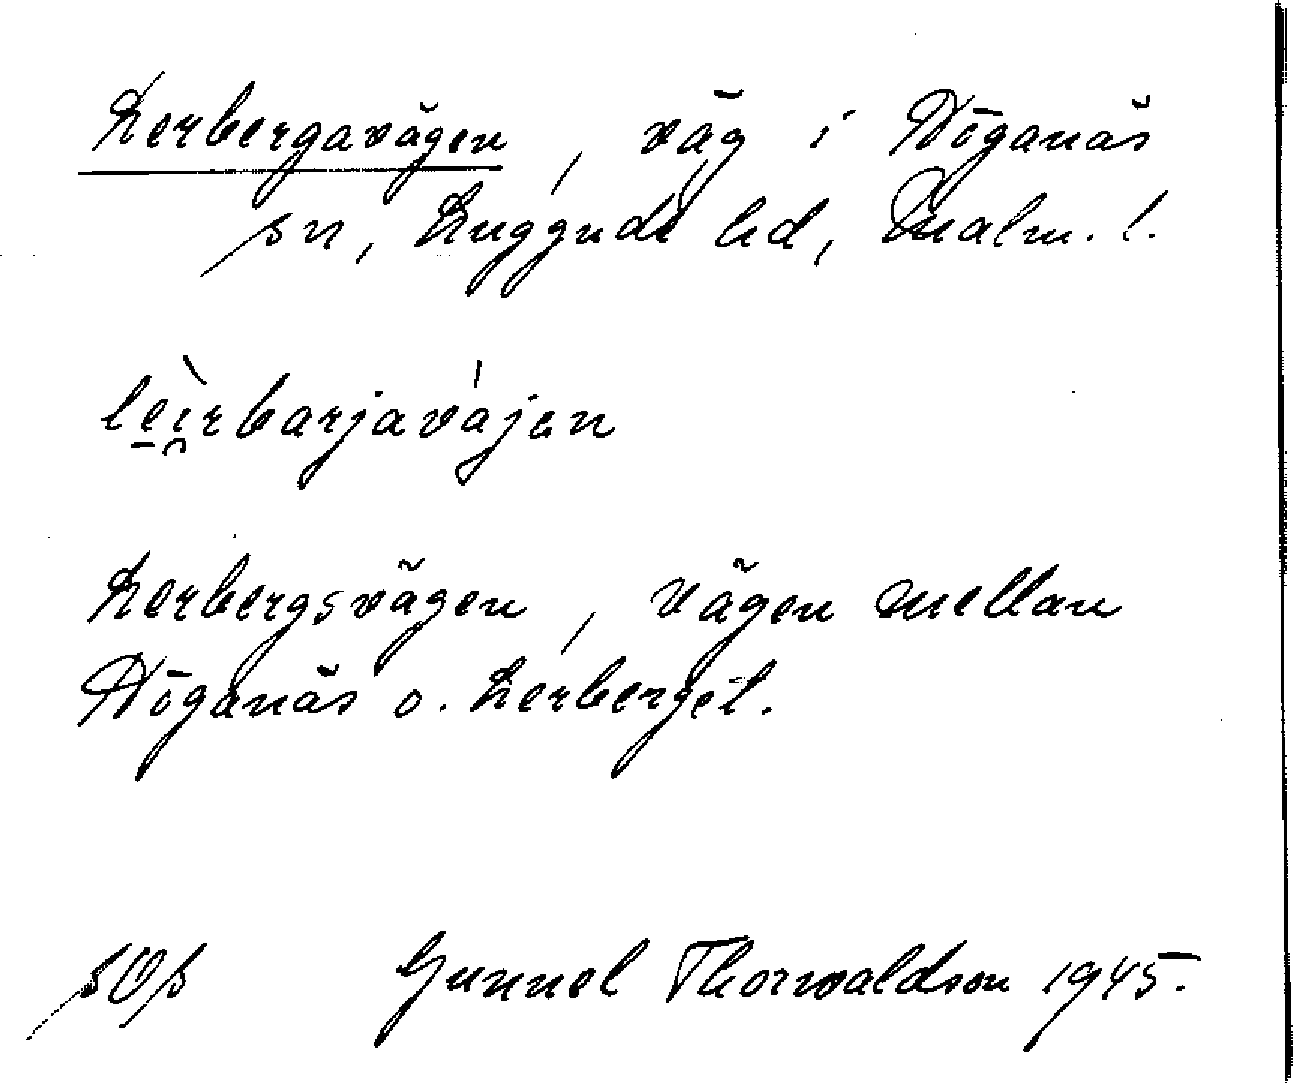 Lerbergavägen, väg i Höganäs
sn, Luggude hd, Malm. l.
lèi̯rbarjavájan
Lerbergsvägen, vägen mellan
Höganäs o. Lerberget.
Gunnel Thorwaldson 1945.